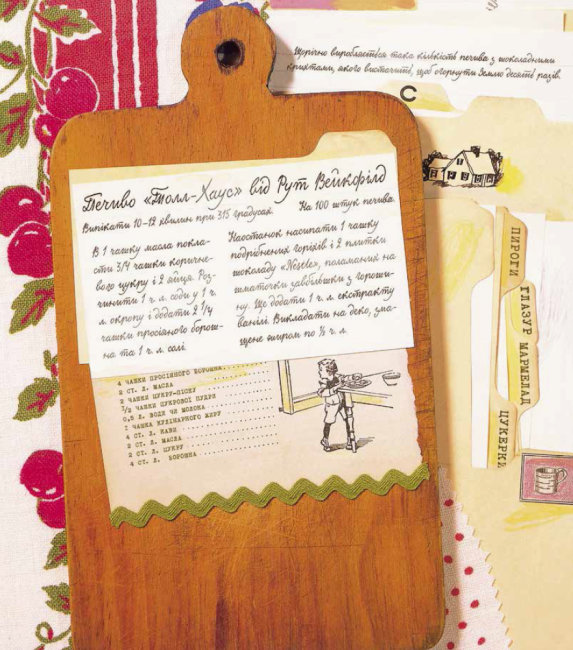 Щорічно виробляється така кількість печива з шоколадними
крихтами, якого вистачить, щоб огорнути Землю десять разів.
С
Печиво «Толл-Хаус» від Рут Вейкфілд
Випікати 10–12 хвилин при 375 градусах.
На 100 штук печива.
В 1 чашку масла покла-
сти 3/4 чашки коричне-
вого цукру і 2 яйця. Роз-
чинити 1 ч. л. соди у 1 ч.
л. окропу і додати 2 1/4
чашки просіяного борош-
на та 1 ч. л. солі.
Наостанок насипати 1 чашку
подрібнених горіхів і 2 плитки
шоколаду «Nestle», поламаних на
шматочки завбільшки з гороши-
ну. Ще додати 1 ч. л. екстракту
ванілі. Викладати на деко, зма-
щене жиром по ½ ч. л.
4 ЧАШКИ ПРОСІЯНОГО БОРОШНА
2 СТ. Л. МАСЛА
2 ЧАШКИ ЦУКРУ-ПІСКУ
ЧАШКИ ЦУКРОВОЇ ПУДРИ
0,5 Л. ВОДИ ЧИ МОЛОКА
ЧАШКА КУЛІНАРНОГО ЖИРУ
4 СТ. Л. КАВИ
2 СТ. Л. МАСЛА
2 СТ. Л. ЦУКРУ
4 СТ. Л. БОРОШНА
ПИРОГИ
ГЛАЗУР
МАРМЕЛАД
ЦУКЕРКИ